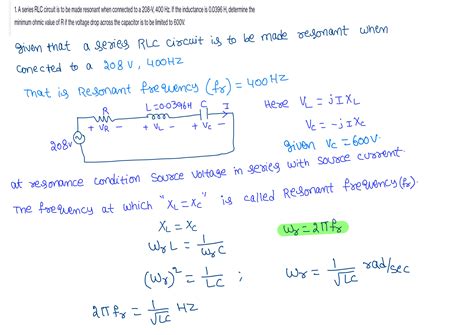 1. A series RLC circuit is to be made resonant when connected to a 208-V, 400 Hz. If the inductance is 0.0396 H, determine the
minimum ohmic value of R if the voltage drop across the capacitor is to be limited to 600V.
given that a series RLC circuit is to be made resonant when
conected to a 208 V, 400HZ
That is Resonant frequency (fr) = 400HZ
R L=0.0396H C I
+ VR - + VL - + Vc -
208V
Here VL = jIXL
Vc = -jIXc
given Vc = 600V.
at resonance condition Source voltage in series with source current.
The frequency at which "XL = Xc" is called Resonant frequency (fr).
XL = Xc
ωr = 2πfr
ωr L = 1/ωr C
(ωr)² = 1/LC ; ωr = 1/√LC rad/sec
2πfr = 1/√LC HZ